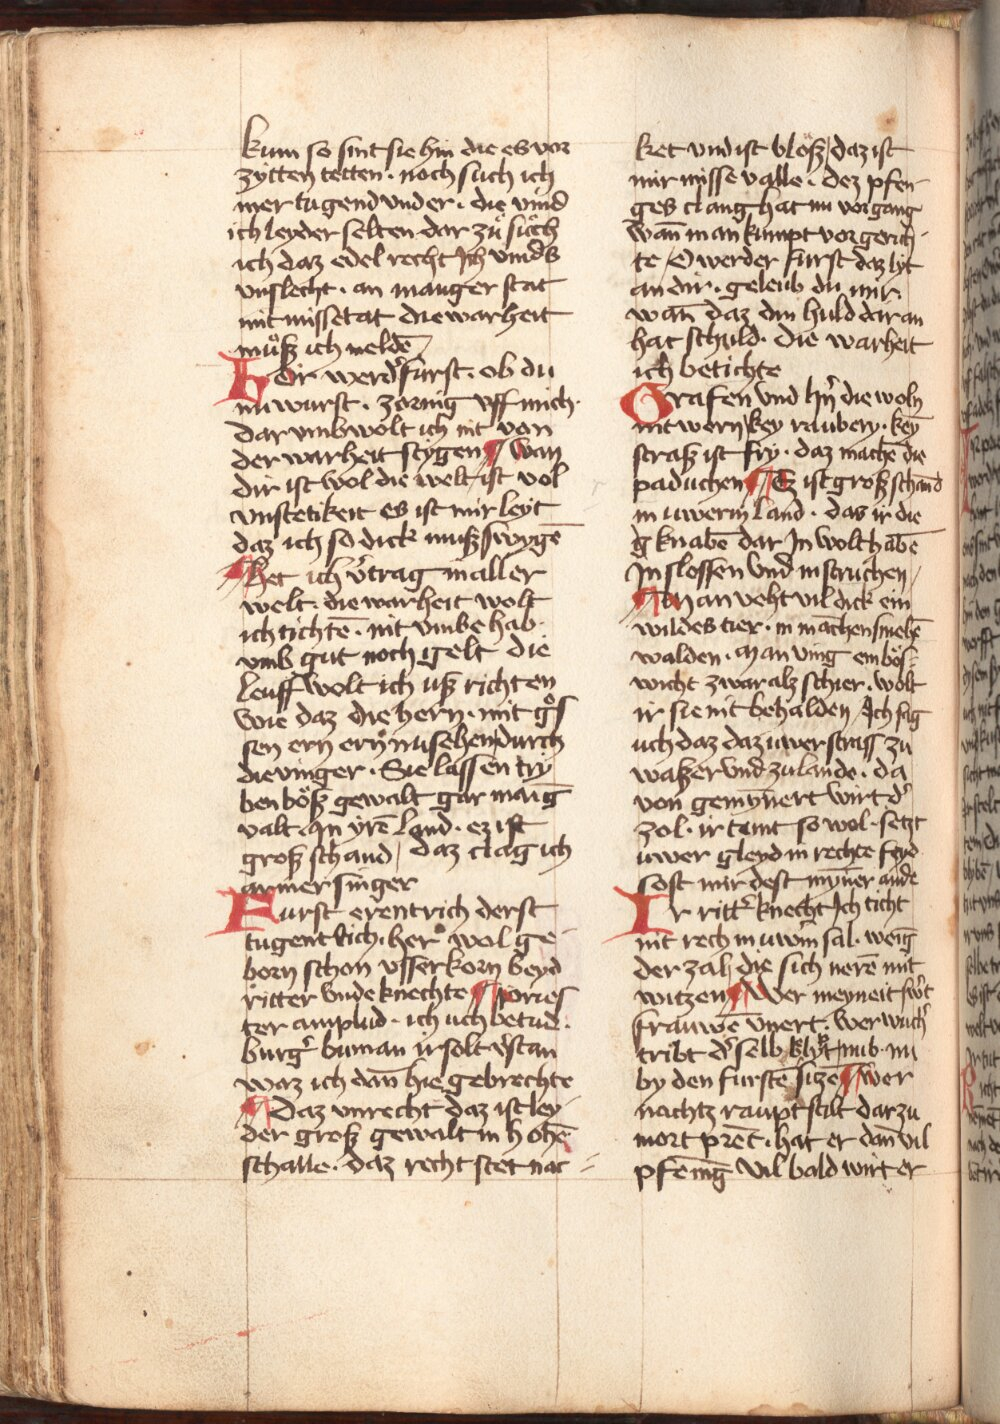 kum so sint sie hin die es vor
zytten tetten · noch such ich
mer tugend vnder · die vind
ich leyder selten dar zů sůch
ich daz edel recht Ich vinds
vnslecht · an manger stat
mit missetat die warheit
můß ich meldē
Hör werdʼ furst · ob du
nu wurst · zornig vff mich ·
dar vmb wolt ich nit von
der warheit stygen ¶ Wan
dir ist wol die welt ist vol
vnstetikeit es ist mir leyt
daz ich so dick muß swygē
¶ Het ich vʼtrag in aller
welt · die warheit wolt
ich tichtē · nit vmbe hab ·
vmb gut noch gelt die
leuff wolt ich uß richten
wie daz die hern · mit gͦs
sen ern ern nu sehen durch
die vinger · Sie lassen try
ben böß gewalt gar manig
valt · In yrē land · ez ist
groß schand / daz clag ich
armer singer
Furst erentrich derst
tugentlich · her wol ge-
born schon vsserkorn beyd
ritter vnde knechte ¶ pories
ter amplud · ich uch betud ·
burgʼ buman ir solt vʼstan
waz ich dan hie gebrechte
¶ Daz vnrecht daz ist ley-
der groß gewalt in hohē
schalle · daz recht stet nac =
ket vnd ist blöß / daz ist
mir misse valle · dez pfen-
ges clang hat nu vorgang
wan̄ man kumpt vor gerich-
te / O werder furst daz lyt
an dir · geleub du mir
wan̄ daz din huld dar an
hat schuld · die warheit
ich betichte
Grafen vnd hʼn die woln
nit wern key raubery · key
straß ist fry · daz machē die
paduchen ¶ Ez ist groß schand
in uwerm land · das ir die
knabē dar In wolt habē
In slossen vnd in struchen /
¶ Man veht vil dick ein
wildes tier · in māchem
walden · man ving ein bös-
wicht zwar alz schier · wolt
ir sie nit behalden / Ich sag
uch daz daz uwer strass zu
waßer vnd zu lande · da
von gemynert wirt dʼ
zol · ir temt so wol · setzt
uwer gleyd in rechte feyd
sost mir dest myner ande
Ir rittʼ knecht Ich ticht
nit rech in uwm sal · wenig
der zal / die sich nerē mit
witzen ¶ Wer meyneit swʼt
frauwē vnert · wer wuchʼ
tribt dʼ selb blybt nit nu
by den furstē sizē ¶ Wer
nachtz raupt stilt dar zu
mort prēt · hat er dan̄ vil
pfenīg vil bald wirt er